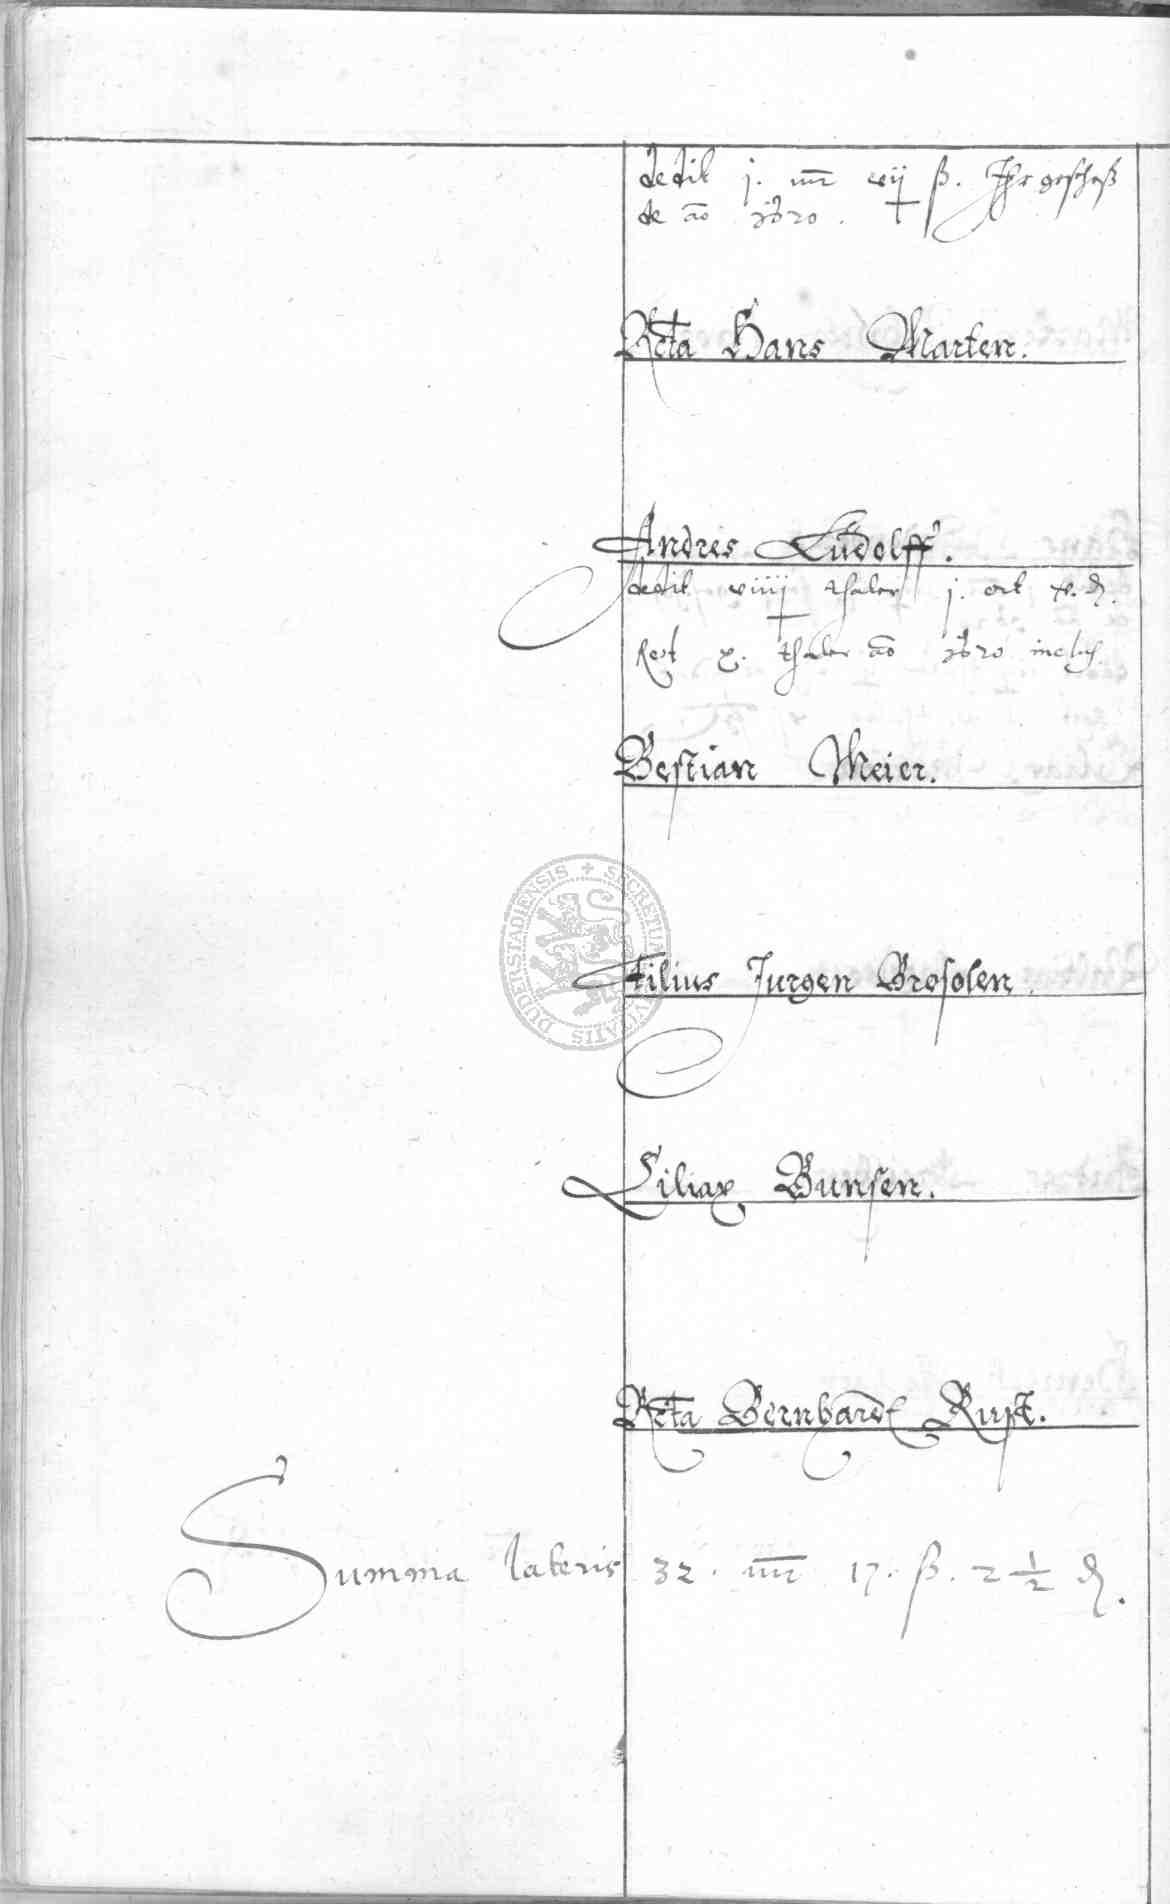 dedit j. mr xvij ß. Ihr geschoß
de ao 1620.
Rcta Hans Marten.
Andres Ludolff.
dedit viiij thaler j. ort x. ₰.
Rest x. thaler ao 1620 inclus.
Bestian Meier.
Filius Jurgen Grososen.
Ciliax Bunsen.
Rcta Bernhardt Rust.
Summa lateris 32. mr 17. ß. 2 1/2 ₰.
SECRETUM CIVITATIS DUDERSTADIENSIS